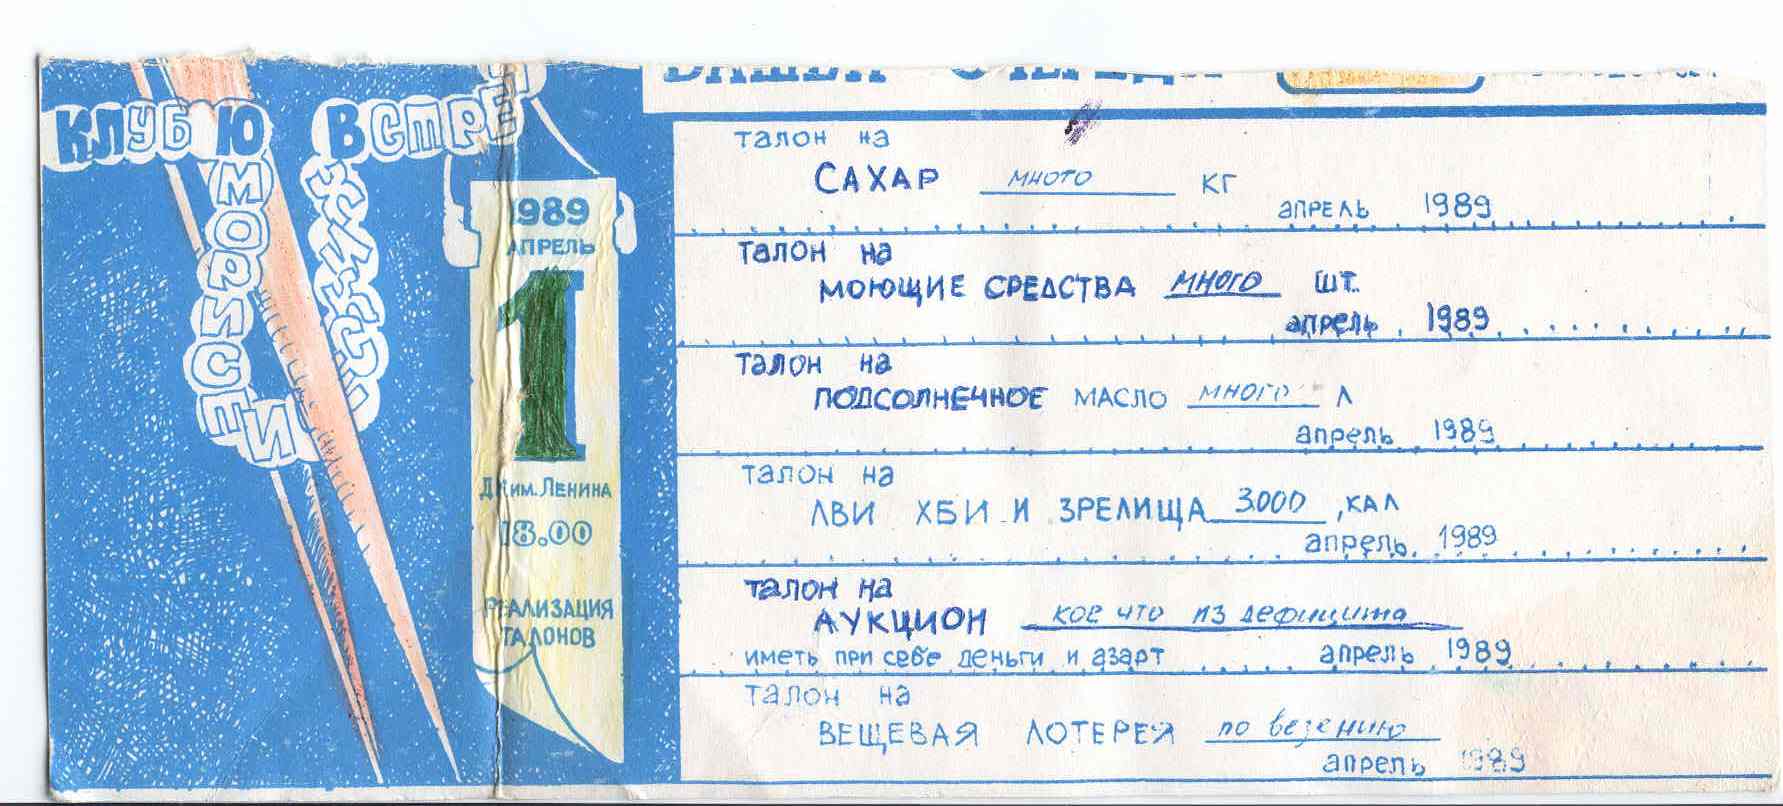 КЛУБ ВСТРЕ
1989
АПРЕЛЬ
1
ДК им. ЛЕНИНА
18.00
РЕАЛИЗАЦИЯ
ТАЛОНОВ
талон на
САХАР много КГ
апрель 1989
талон на
МОЮЩИЕ СРЕДСТВА много ШТ.
апрель 1989
талон на
ПОДСОЛНЕЧНОЕ МАСЛО много Л
апрель 1989
талон на
ЛВИ ХБИ И ЗРЕЛИЩА 3000 ,КАЛ
апрель 1989
талон на
АУКЦИОН кое что из дефицита
иметь при себе деньги и азарт апрель 1989
талон на
ВЕЩЕВАЯ ЛОТЕРЕЯ по везению
апрель 1989